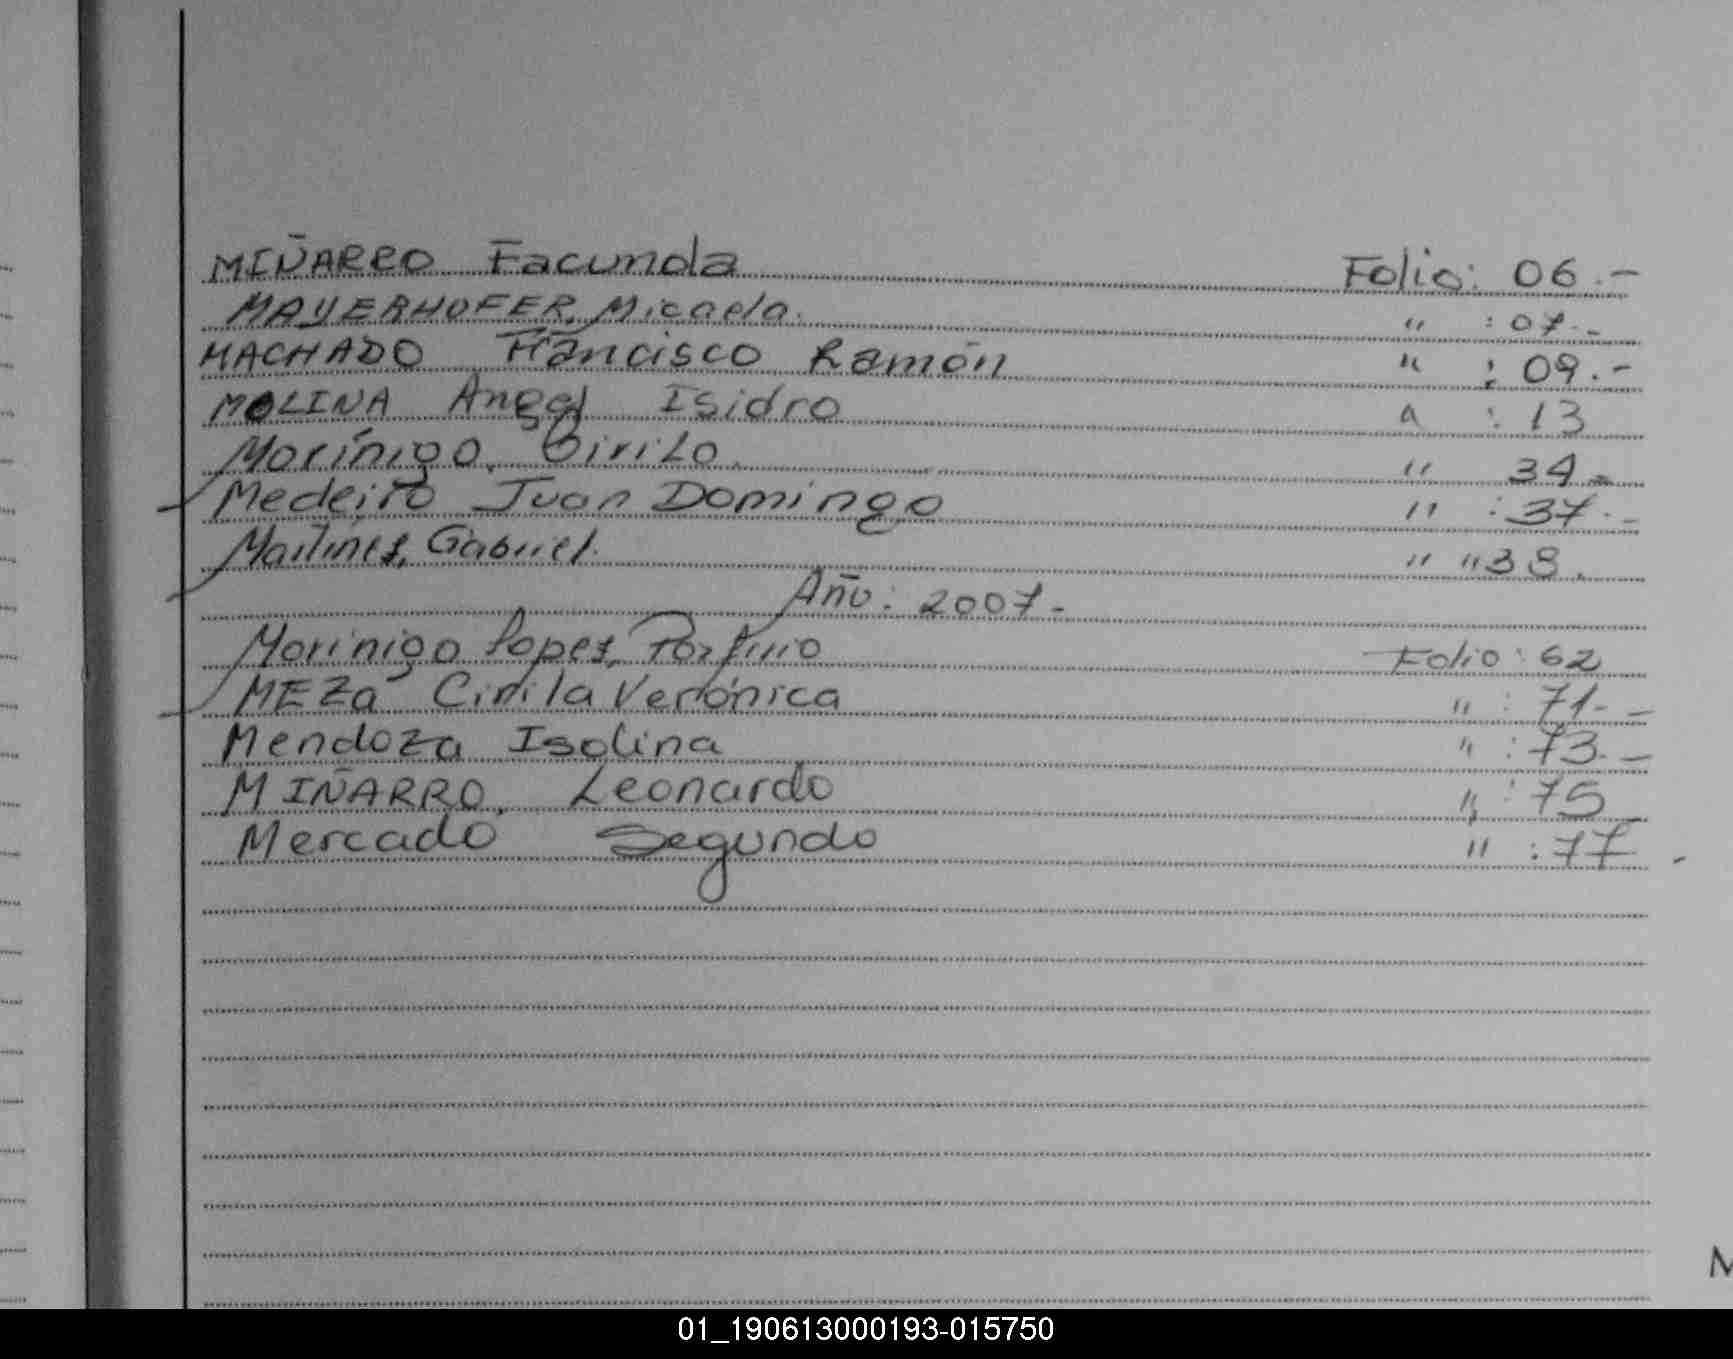 MIÑARRO Facunda Folio: 06.-
MAYERHOFER, Micaela. " : 07.-
MACHADO Francisco Ramón " : 09.-
MOLINA Angel Isidro " : 13
Morínigo, Cirilo. " 34.-
Medeiro Juan Domingo " : 37.-
Martínes, Gabriel. " " 38.
Año: 2007.-
Morinigo Lopes, Porfirio Folio: 62
MEZa Cirila Verónica " : 71.-
Mendoza Isolina " : 73.-
MIÑARRO, Leonardo " : 75
Mercado Segundo " : 77.
M
01_190613000193-015750